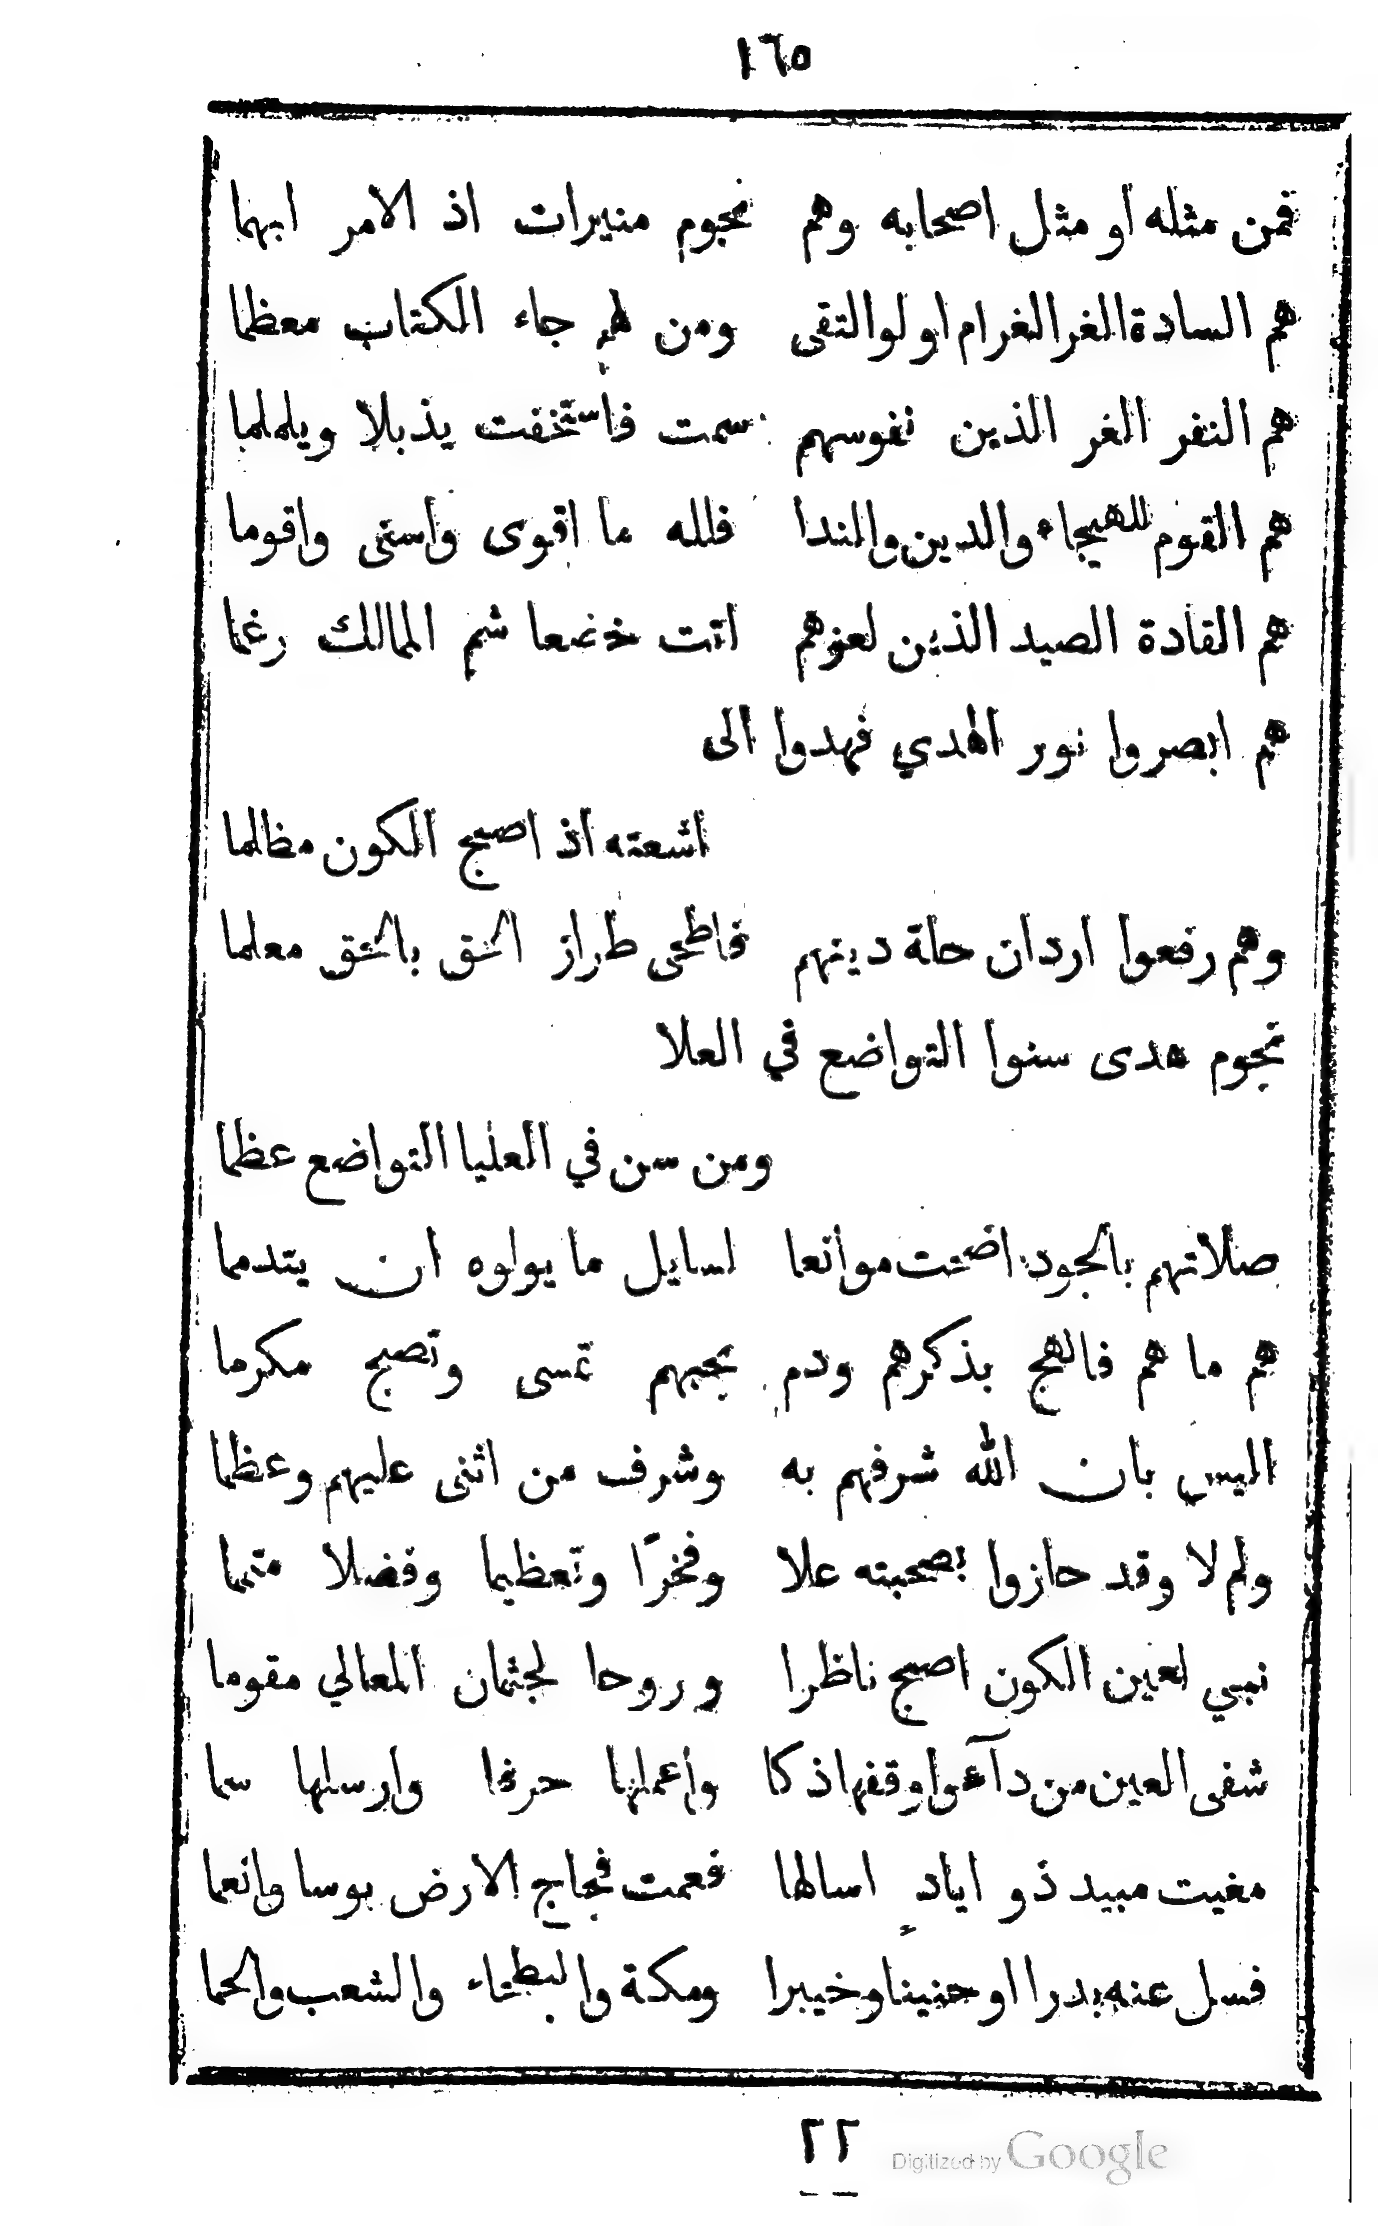 ١٦٥
فمن مثله او مثل اصحابه وهم نجوم منيرات اذ الامر ابهما
هم السادة الغر الغرام اولو التقى ومن لهم جاء الكتاب معظما
هم النفر الغر الذين نفوسهم سمت فاستخفت يذبلا ويلملما
هم القوم للهيجاء والدين والندا فلله ما اقوى واسنى واقوما
هم القادة الصيد الذين لعزهم اتت خضعا شم الممالك رغما
هم ابصروا نور الهدي فهدوا الى
اشعته اذ اصبح الكون مظلما
وهم رفعوا اردان حلة دينهم فاضحى طراز الحق بالحق معلما
نجوم هدى سنوا التواضع في العلا
ومن سن في العليا التواضع عظما
صلاتهم بالجود اضحت موانعا لسايل ما يولوه ان يتدمما
هم ما هم فالهج بذكرهم ودم بحبهم تمسى وتصبح مكرما
اليس بان الله شرفهم به وشرف من اثنى عليهم وعظما
ولم لا وقد حازوا بصحبته علا وفخرًا وتعظيما وفضلا متمما
نبي لعين الكون اصبح ناظرا وروحا لجثمان المعالي مقوما
شفى العين من دآء واوقفها ذكا واعملها حرفا وارسلها سما
مغيت مبيد ذو ايادٍ اسالها فعمت فجاج الارض بوسا وانعما
فسل عنه بدرا او حنينا وخيبرا ومكة والبطحاء والشعب والحما
٢٢
Digitized by Google